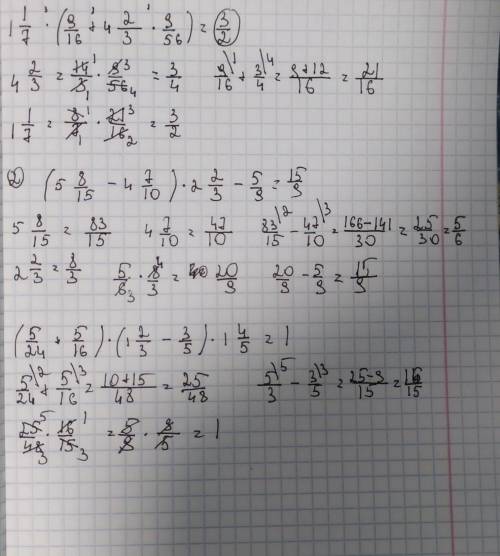 1 1/7 · (9/16 + 4 2/3 · 9/56) = 3/2
4 2/3 = 14/3 · 9/56 = 3/4  9/16 + 3/4 = 9+12/16 = 21/16
1 1/7 = 8/7 · 21/16 = 3/2
2 (5 8/15 - 4 7/10) · 2 2/3 - 5/9 = 15/9
5 8/15 = 83/15  4 7/10 = 47/10  83/15 - 47/10 = 166-141/30 = 25/30 = 5/6
2 2/3 = 8/3  5/6 · 8/3 = 20/9  20/9 - 5/9 = 15/9
(5/24 + 5/16) · (1 2/3 - 3/5) · 1 4/5 = 1
5/24 + 5/16 = 10+15/48 = 25/48  5/3 - 3/5 = 25-9/15 = 16/15
25/48 · 16/15 = 5/9 · 9/5 = 1